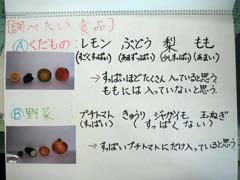 [調べたい食品]
Ⓐくだもの レモン ぶどう 梨 もも
(すごくすっぱい) (あまずっぱい) (少しすっぱい) (あまい)
→すっぱいほどたくさん入っていると思う
ももには入っていないと思う。
Ⓑ野菜 プチトマト きゅうり ジャガイモ 玉ねぎ
(すっぱい) (すっぱくない)
→すっぱいプチトマトにだけ入っていると思う